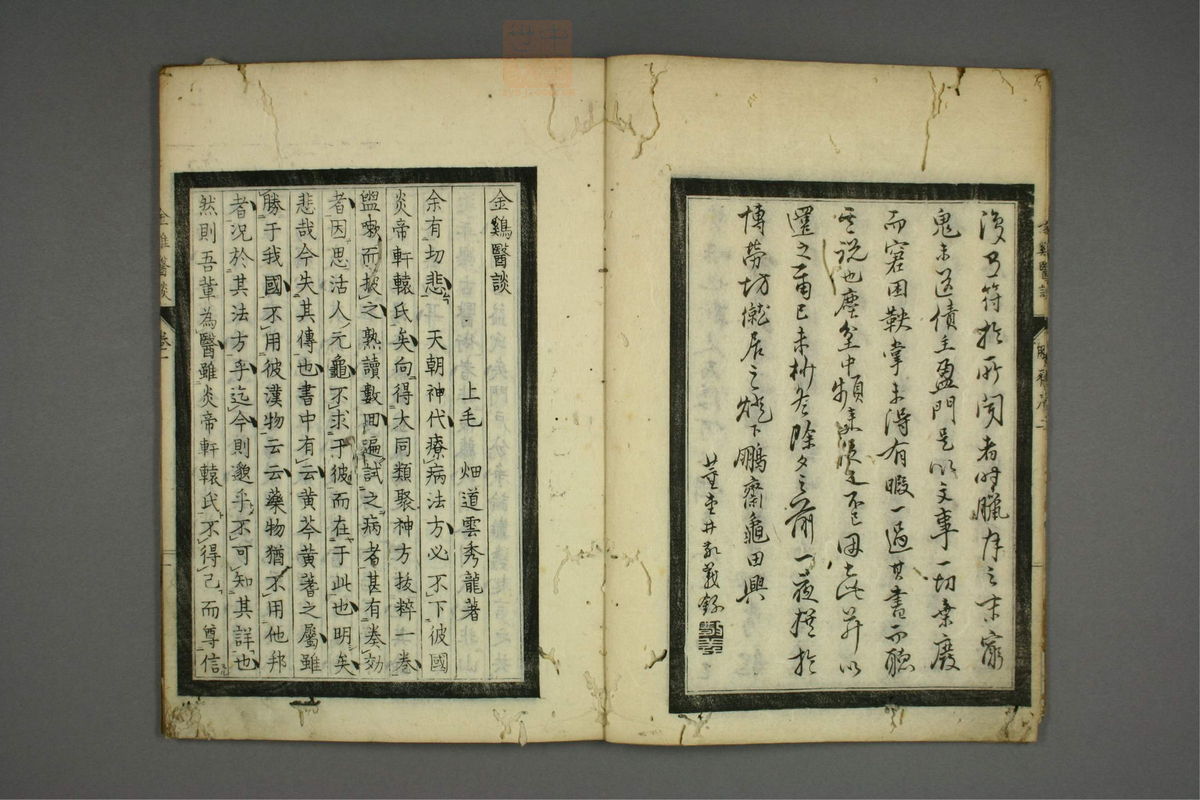 後乃符於所聞者時臘月之末窮
鬼未送債主盈門是以文事一切棄廢
而窘困鞅掌未得有暇一過其書而聽
其説也塵坌中頻来不已因
還之旹己未杪冬除夕之前一夜撰於
博勞坊僦居之燈下鵬齋龜田興
董堂井敬義録
金鷄醫談
上毛 畑道雲秀龍著
余有切悲 天朝神代療病法方必不下彼國
炎帝軒轅氏矣向得大同類聚神方抜粹一巻
盥嗽而披之熟讀數回遍試之病者甚有奏効
者因思活人元龜不求于彼而在于此也明矣
悲哉今失其傳也書中有云黄芩黄蓍之屬雖
勝于我國不用彼漢物云云藥物猶不用他邦
者况於其法方乎迄今則邈乎不可知其詳也
然則吾輩為醫雖炎帝軒轅氏不得已而尊信